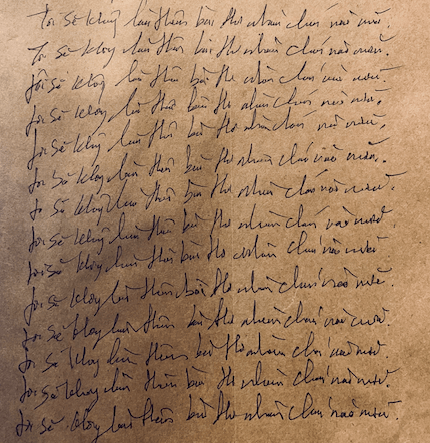 Tôi sẽ không làm thêm bài thơ nhàm chán nào nữa.
Tôi sẽ không làm thêm bài thơ nhàm chán nào nữa.
Tôi sẽ không làm thêm bài thơ nhàm chán nào nữa.
Tôi sẽ không làm thêm bài thơ nhàm chán nào nữa.
Tôi sẽ không làm thêm bài thơ nhàm chán nào nữa.
Tôi sẽ không làm thêm bài thơ nhàm chán nào nữa.
Tôi sẽ không làm thêm bài thơ nhàm chán nào nữa.
Tôi sẽ không làm thêm bài thơ nhàm chán nào nữa.
Tôi sẽ không làm thêm bài thơ nhàm chán nào nữa.
Tôi sẽ không làm thêm bài thơ nhàm chán nào nữa.
Tôi sẽ không làm thêm bài thơ nhàm chán nào nữa.
Tôi sẽ không làm thêm bài thơ nhàm chán nào nữa.
Tôi sẽ không làm thêm bài thơ nhàm chán nào nữa.
Tôi sẽ không làm thêm bài thơ nhàm chán nào nữa.